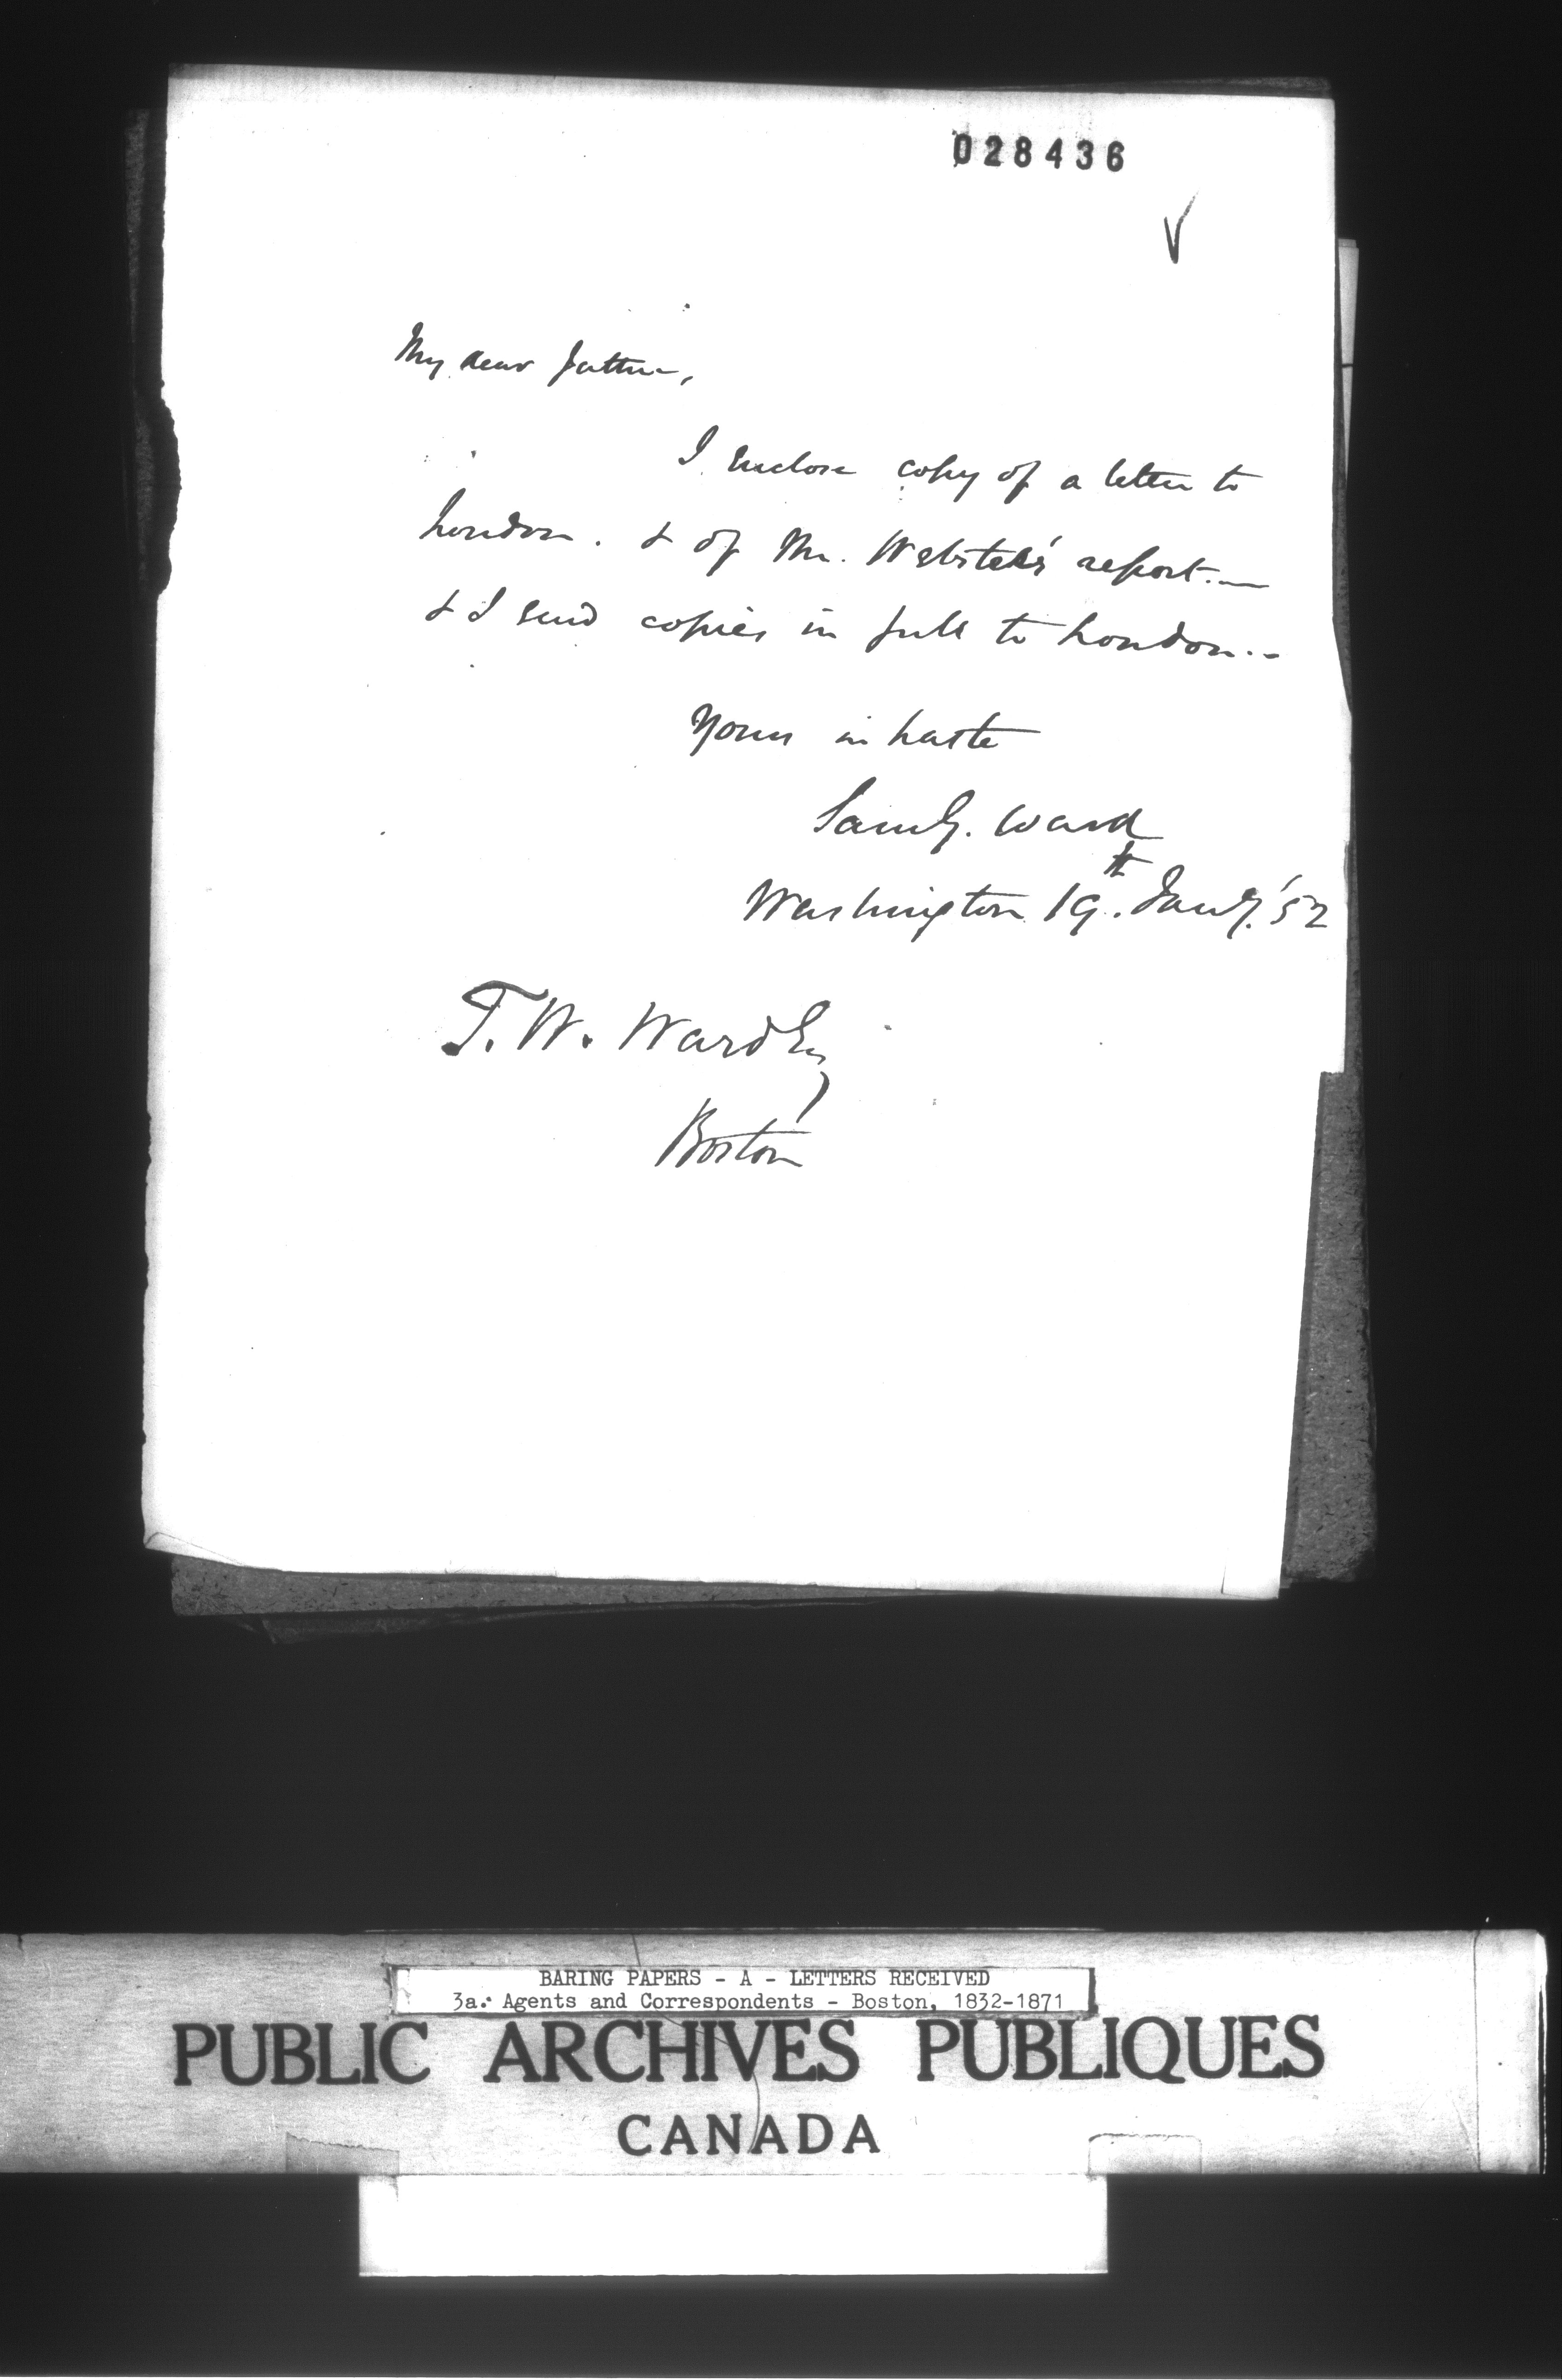 028436
My dear father,
I enclose copy of a letter to
London. & of Mr. Webster's report.—
& I send copies in full to London..
Yours in haste
Saml G. Ward
Washington 19th. Jany. '52
T. W. Ward Esq
Boston
BARING PAPERS - A - LETTERS RECEIVED
3a. Agents and Correspondents - Boston, 1832-1871
PUBLIC ARCHIVES PUBLIQUES
CANADA